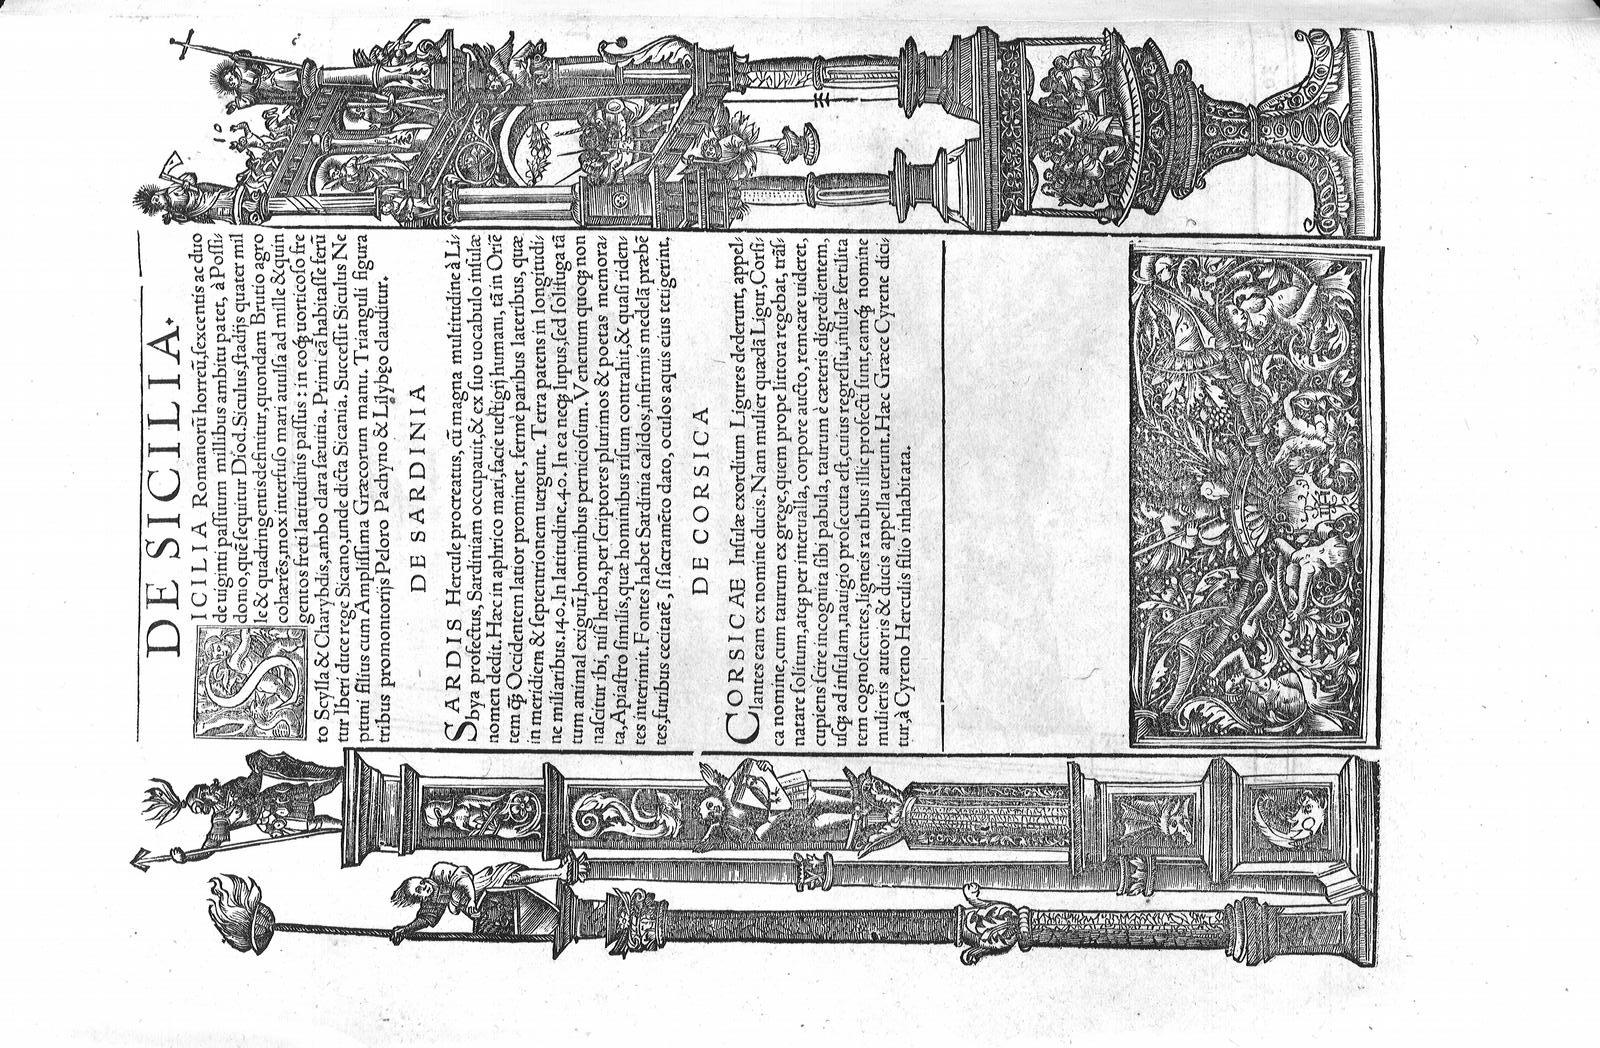 DE SICILIA.
SICILIA Romanorũ horreũ, sexcentis ac duo
de uiginti passuum millibus ambitu patet, à Possi
donio, quẽ sequitur Diod. Siculus, stadijs quater mil
le & quadringentis definitur, quondam Brutio agro
cohærẽs, mox interfuso mari auulsa ad mille & quin
gentos freti latitudinis passus: in eoq́ꝫ uorticoso fre
to Scylla & Charybdis, ambo clara sæuitia. Primi eã habitasse ferũ
tur Iberi duce rege Sicano, unde dicta Sicania. Successit Siculus Ne
ptuni filius cum Amplissima Græcorum manu. Trianguli figura
tribus promontorijs Peloro Pachyno & Lilybęo clauditur.
DE SARDINIA
SARDIS Hercule procreatus, cũ magna multitudine à Li
bya profectus, Sardiniam occupauit, & ex suo uocabulo insulæ
nomen dedit. Hæc in aphrico mari, facie uestigij humani, tã in Oriẽ
tem q̃ꝫ Occidentem latior prominet, fermè paribus lateribus, quæ
in meridiem & septentrionem uergunt. Terra patens in longitudi
ne miliaribus. 140. In latitudine. 40. In ea neqꝫ lupus, sed solifuga tã
tum animal exiguũ, hominibus perniciosum. Venenum quoqꝫ non
nascitur ibi, nisi herba, per scriptores plurimos & poetas memora
ta, Apiastro similis, quæ hominibus risum contrahit, & quasi riden
tes interimit. Fontes habet Sardinia calidos, infirmis medelã præbẽ
tes, furibus cecitatẽ, si sacramẽto dato, oculos aquis eius tetigerint,
DE CORSICA
CORSICAE Insulæ exordium Ligures dederunt, appel
lantes eam ex nomine ducis. Nam mulier quædã Ligur, Corsi
ca nomine, cum taurum ex grege, quem prope littora regebat, trãsi
natare solitum, atqꝫ per interualla, corpore aucto, remeare uideret,
cupiens scire incognita sibi pabula, taurum è cæteris digredientem,
usqꝫ ad insulam, nauigio prosecuta est, cuius regressu, insulæ fertilita
tem cognoscentes, ligneis ratibus illic profecti sunt, eamq́ꝫ nomine
mulieris autoris & ducis appellauerunt. Hæc Græce Cyrene dici
tur, à Cyreno Herculis filio inhabitata.
10
IH